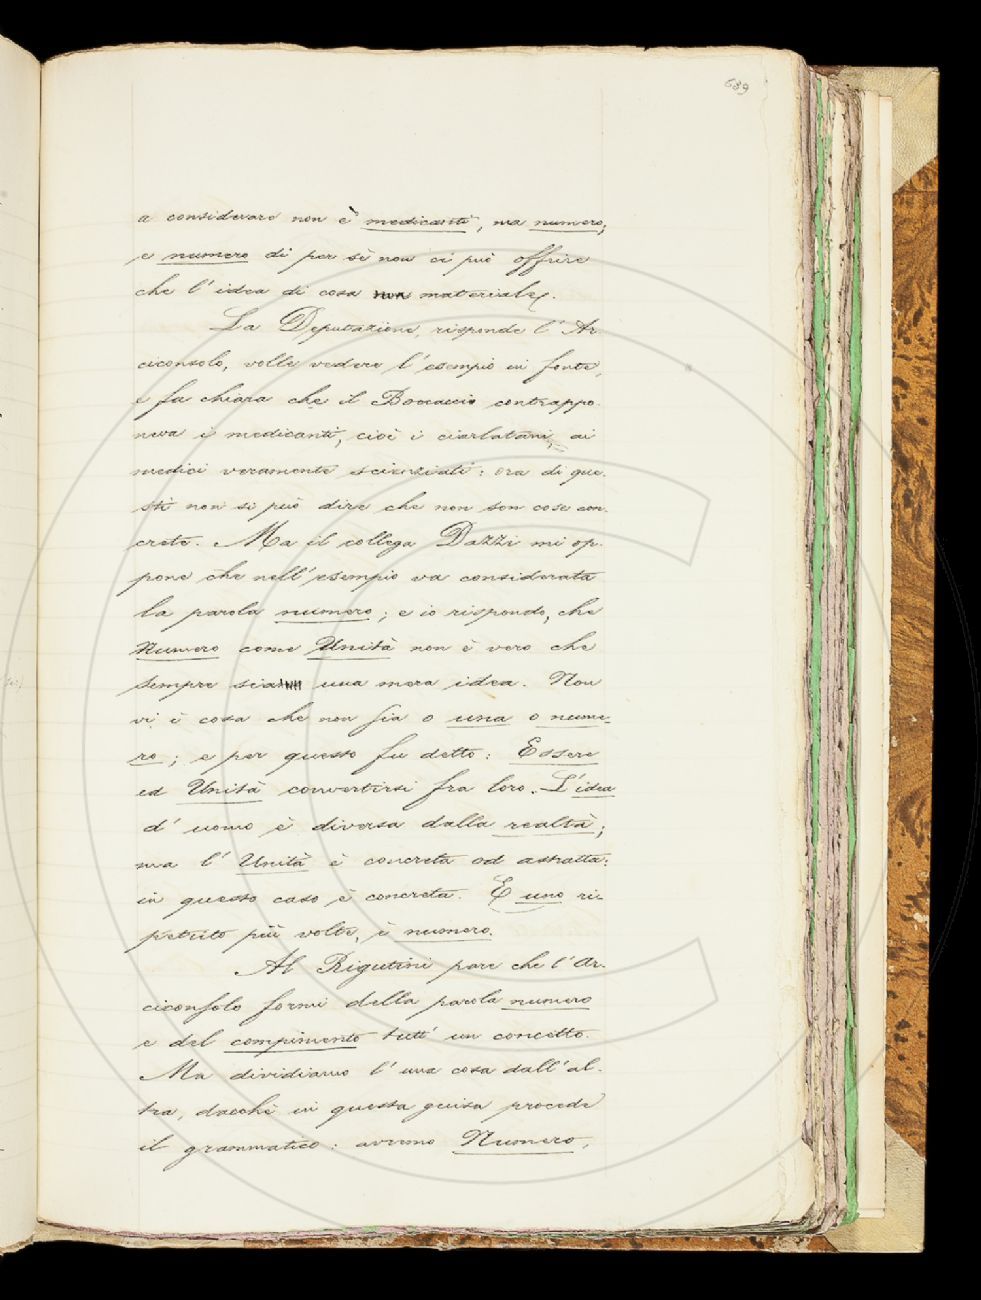 639
a considerare non è medicanti, ma numero;
e numero di per sè non ci può offrire
che l'idea di cosa non materiale.
La Deputazione, risponde l'Ar-
ciconsolo, volle vedere l'esempio in fonte,
e fa chiara che il Boccaccio contrappo-
neva i medicanti, cioè i ciarlatani, ai
medici veramente scienziati: ora di que-
sti non si può dire che non son cose con-
crete. Ma il collega Dazzi mi op-
pone che nell'esempio va considerata
la parola numero; e io rispondo, che
Numero come Unità non è vero che
sempre sia una mera idea. Non
vi è cosa che non sia o una o nume-
ro; e per questo fu detto: Essere
ed Unità convertirsi fra loro. L'idea
d'uomo è diversa dalla realtà;
ma l'Unità è concreta od astratta:
in questo caso è concreta. E uno ri-
petuto più volte, è numero.
Al Rigutini pare che l'Ar-
ciconsolo formi della parola numero
e del compimento tutt'un concetto.
Ma dividiamo l'una cosa dall'al-
tra, dacchè in questa guisa procede
il grammatico: avremo Numero,